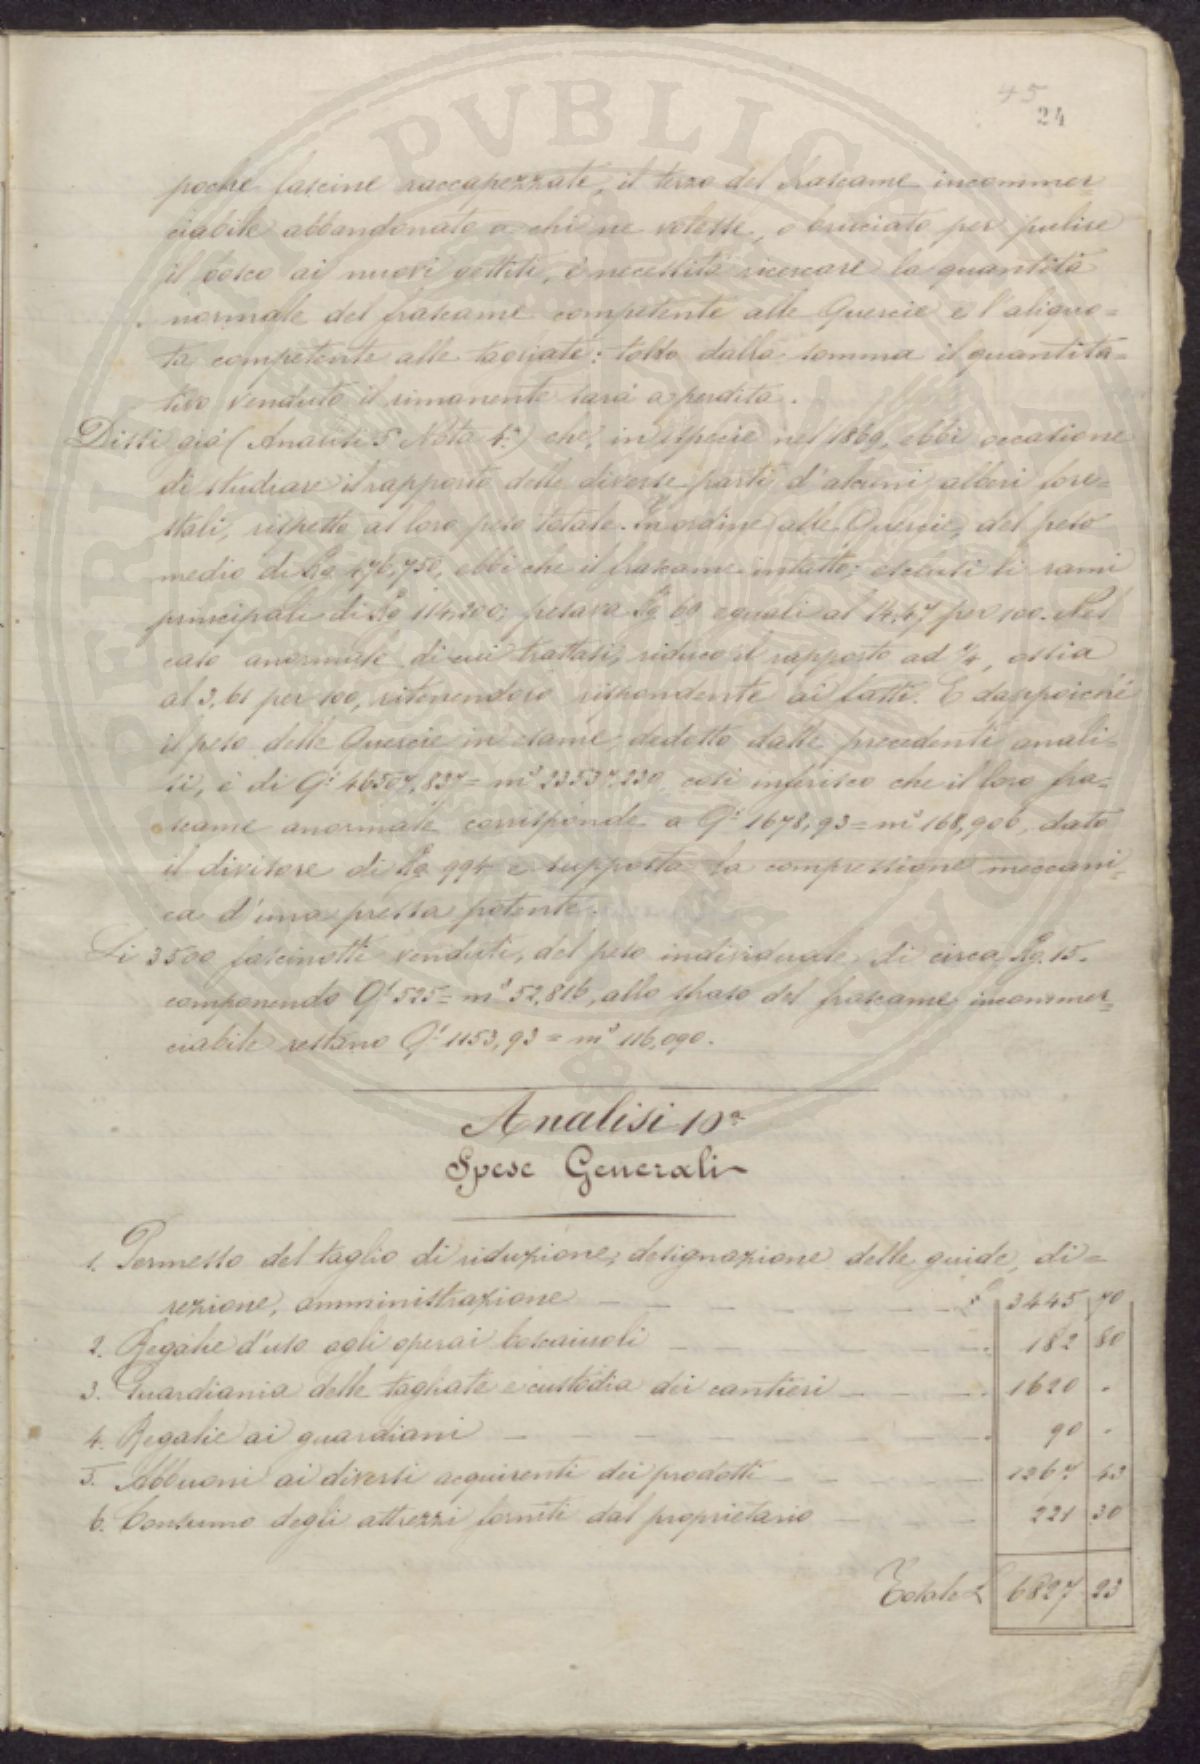 45
24
poche fascine raccapezzate, il terzo del frascame incommer=
ciabile abbandonato a chi ne volesse, o bruciato per pulire
il bosco ai nuovi gettiti, è necessità ricercare la quantità
normale del frascame competente alle Quercie e l'aliquo=
ta competente alle tagliate: tolto dalla somma il quantita=
tivo venduto il rimanente sarà a perdita.
Dissi già (Analisi 5ª Nota 4ª) che, in ispecie nel 1869, ebbi occasione
di studiare il rapporto delle diverse parti d'alcuni alberi fore=
stali, rispetto al loro peso totale. In ordine alle Quercie, del peso
medio di Kg. 476,750, ebbi che il frascame intutto; esclusi li rami
principali di Kg 114,200; pesava Kg. 60 eguali al 14,47 per 100. Nel
caso anormale di cui trattasi, riduco il rapporto ad ¼, ossia
al 3,61 per 100, ritenendolo rispondente ai fatti. E dappoichè
il peso delle Quercie in esame, dedotto dalle precedenti anali=
si, è di Qⁱ 46507,837 = m³ 23537,230, così inferisco che il loro fra=
scame anormale corrisponde a Qⁱ 1678,93 = m³ 168,906, dato
il divisore di Kg 994 e supposta la compressione meccani=
ca d'una pressa potente.
Li 3500 fascinotti venduti, del peso individuale di circa Kg. 15.
componendo Qⁱ 525 = m³ 52,816, allo strato del frascame incommer=
ciabile restano Qⁱ 1153,93 = m³ 116,090.
Analisi 10ª
Spese Generali
1. Permesso del taglio di riduzione, designazione delle guide, di=
rezione, amministrazione £ 3445 70
2. Regalie d'uso agli operai boscaiuoli 182 80
3. Guardiania delle tagliate e custodia dei cantieri 1620 -
4. Regalie ai guardiani 90 -
5. Abbuoni ai diversi acquirenti dei prodotti 1267 43
6. Consumo degli attrezzi forniti dal proprietario 221 30
Totale £ 6827 23